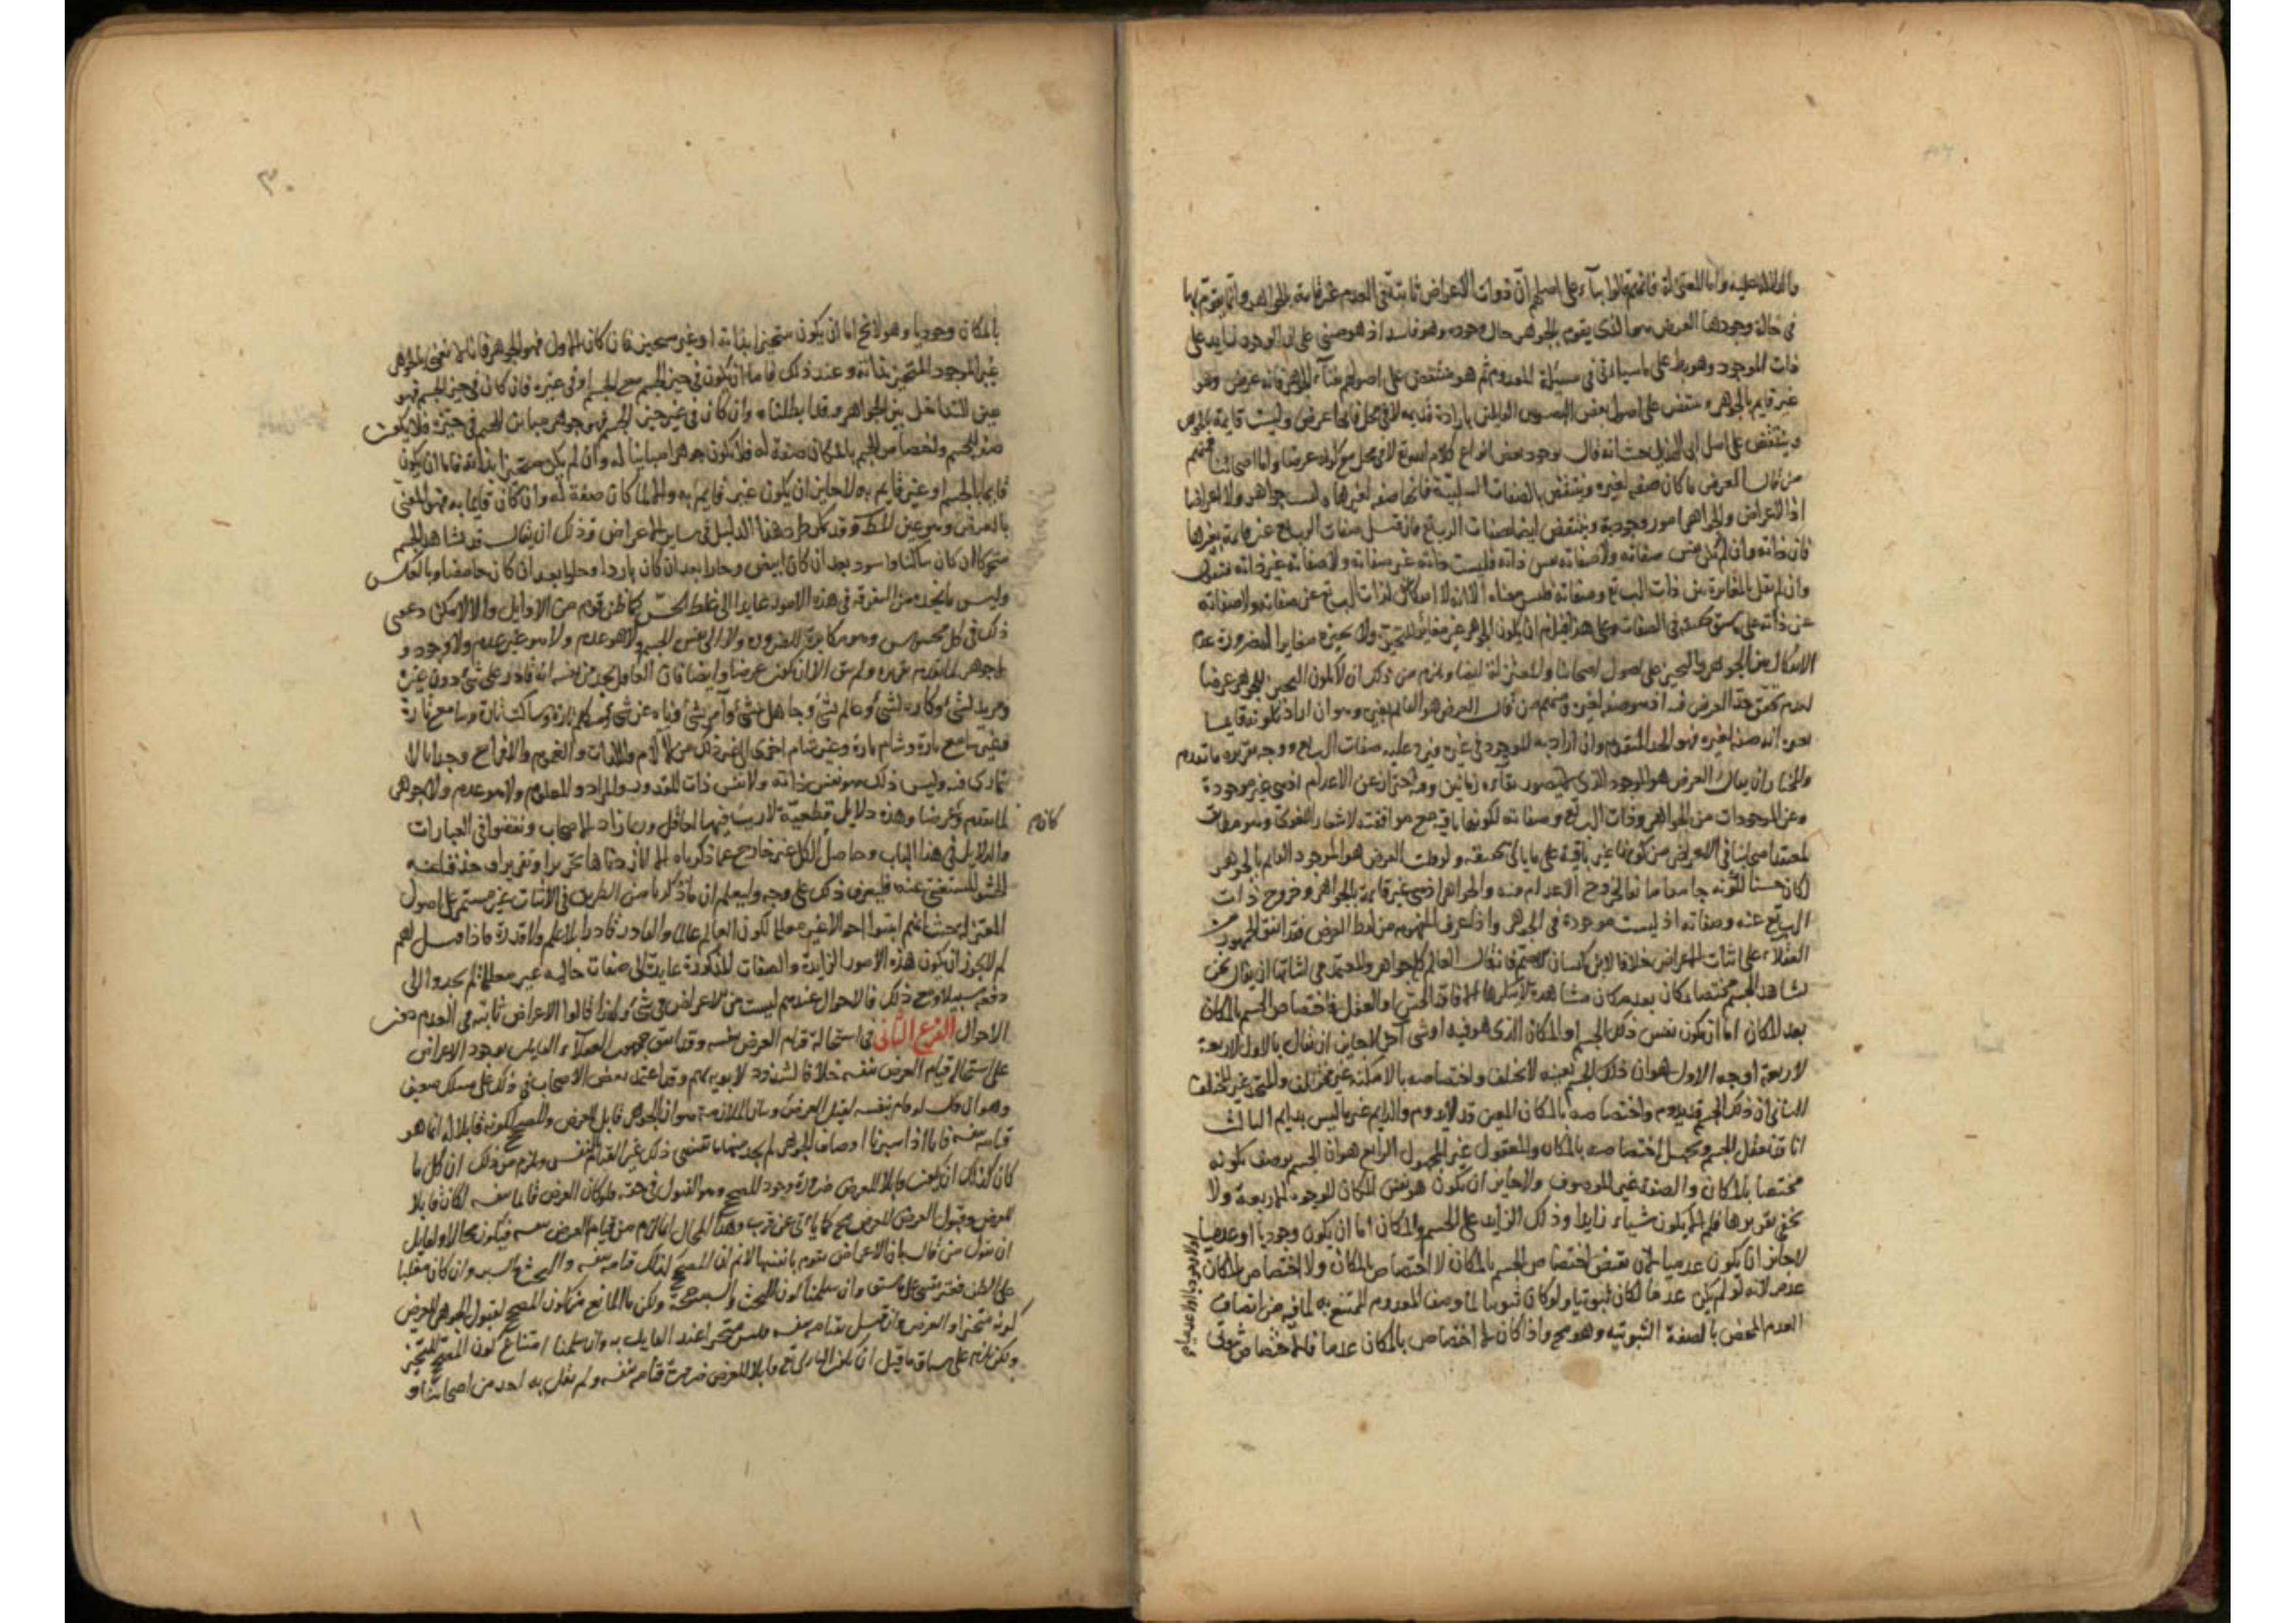 والدلالة عليه واما المعتزلة فانهم قالوا بناء على اصلهم ان ذوات الاعراض ثابتة في العدم غير قايمة بالجواهر وانما يقوم بها
في حالة وجودها العرض هو الذي يقوم بالجوهر حال وجوده وهو فاسد اذ هو مبني على ان الوجود زايد على
ذات الموجود وهو بط على ما سياتي في مسئلة المعدوم ثم هو منتقض على اصولهم بفناء الجواهر فانه عرض وهو
غير قايم بالجوهر ومنتقض على اصول بعض البصريين القايلين بارادة قديمة لا في محل فانها عرض وليست قايمة بالجوهر
وينتقض على اصل ابي الهذيل حيث انه قال بوجود بعض انواع كلام الله تع لا في محل مع كونه عرضا واما اصحابنا فمنهم
من قال العرض ما كان صفة لغيره وينتقض بالصفات السلبية فانها صفة لغيرها وليست جواهر ولا اعراضا
اذ الاعراض والجواهر امور وجودية وينتقض ايضا بصفات الرب تع فان قيل صفات الرب تع غير قايمة بغيرها
فان ذاته وان لم تكن عين صفاته ولا صفاته عين ذاته فليست ذاته غير صفاته ولا صفاته غير ذاته فنقول
وان لم نقل بالمغايرة بين ذات الرب تع وصفاته فليس معناه الا انه لا انفكاك لذات الرب تع عن صفاته ولا صفاته
عن ذاته على ما سبق تحقيقه في الصفات وعلى هذا فيلزم ان يكون الجوهر غير مغاير للتحيز ولا تحيزه مغايرا لضرورة عدم
الانفكاك بين الجوهر والتحيز على اصول اصحابنا والمعتزلة ايضا ويلزم من ذلك ان لا يكون التحيز للجوهر عرضا
لعدم تحقق حد العرض فيه اذ هو صفة لغيره ومنهم من قال العرض هو القايم بغيره وهو ان اراد بكونه قايما
بغيره انه صفة لغيره فهو الحد المتقدم وان اراد به الموجود في غيره فيرد عليه صفات الرب تع ووجه تقريره ما تقدم
والمختار ان يقال العرض هو الموجود الذي لا يتصور بقاؤه زمانين وفيه احتراز عن الاعدام اذ هي غير موجودة
وعن الموجودات من الجواهر وذات الرب تع وصفاته لكونها باقية مع موافقته لاشعار اللغوي وهو مطابق
لمعتقد اصحابنا في الاعراض من كونها غير باقية على ما ياتي تحقيقه ولو قلت العرض هو الموجود القايم بالجوهر
لكان حسنا لكونه جامعا مانعا لخروج الاعدام منه والجواهر اذ هي غير قايمة بالجواهر وخروج ذات
الرب تع عنه وصفاته اذ ليست موجودة في الجوهر واذا عرف المفهوم من لفظ العرض فقد اتفق الجمهور من
العقلاء على اثبات الاعراض خلافا لابن كيسان الاصم فانه قال العالم كله جواهر والمعتمد في اثباتها ان يقال نحن
نشاهد الجسم مختصا بمكان بعد مكان مشاهدة لا ينكرها الا فاقد الحس او العقل فاختصاص الجسم بالمكان
بعد المكان اما ان يكون نفس ذلك الجسم او المكان الذي هو فيه او شئ آخر لا جايز ان يقال بالاول لاربعة
لاربعة اوجه الاول هو ان ذلك الجسم بعينه لا يختلف واختصاصه بالامكنة غير مختلف والمتحد غير المختلف
الثاني ان ذلك الجسم قد يدوم واختصاصه بالمكان المعين قد لا يدوم والدايم غير ما ليس بدايم الثالث
انا قد نعقل الجسم ونجهل اختصاصه بالمكان والمعقول غير المجهول الرابع هو ان الجسم يوصف بكونه
مختصا بالمكان والصفة غير الموصوف ولا جايز ان يكون هو نفس المكان للوجوه الاربعة ولا
يخفى تقريرها فلم يبق الا ان يكون شياء زايدا وذلك الزايد على الجسم والمكان اما ان يكون وجوديا او عدميا
لا جايز ان يكون عدميا لان نقيض اختصاص الجسم بالمكان لا اختصاص بالمكان ولا اختصاص بالمكان
عدم لانه لو لم يكن عدما لكان ثبوتيا ولو كان ثبوتيا لما وصف المعدوم الممتنع به لما فيه من اتصاف
العدم المحض بالصفة الثبوتية وهو مح واذا كان لا اختصاص بالمكان عدما فالاختصاص ثبوتي
٣٠
بالمكان وجوديا وهو لا يخ اما ان يكون متحيزا بذاته او غير متحيز فان كان الاول فهو الجوهر فانا لا نعني بالجوهر
غير الموجود المتحيز بذاته وعند ذلك فاما ان يكون في حيز الجسم مع الجسم او في غيره فان كان في حيز الجسم فهو
عين التداخل بين الجواهر وقد ابطلناه وان كان في غير حيز الجسم فهو جوهر مباين للجسم في حيزه فلا يكون
صفة للجسم واختصاص الجسم بالمكان صفة له فلا يكون جوهرا مباينا له وان لم يكن متحيزا بذاته فاما ان يكون
قايما بالجسم او غير قايم به لا جايز ان يكون غير قايم به والا لما كان صفة له وان كان قايما به فهو المعني
بالعرض وهو عين المط وقد يمكن طرد هذا الدليل في ساير الاعراض وذلك ان يقال قد نشاهد الجسم
متحركا ان كان ساكنا واسود بعد ان كان ابيض وحارا بعد ان كان باردا وحلوا بعد ان كان حامضا وبالعكس
وليس ما نجده من التفرقة في هذه الامور عايدا الى غلط الحس كما ظن قوم من الاوايل والا لامكن دعوى
ذلك في كل محسوس وهو مكابرة للضرورة ولا الى نفس الجسم ولا هو عدم ولا هو غير عدم ولا وجود و
لا جوهر لما تقدم تقريره ولم يبق الا ان يكون عرضا وايضا فان العاقل يجد من نفسه انه قادر على شئ دون غيره
ومريد لشئ وكاره لشئ وعالم بشئ وجاهل بشئ وآمر بشئ وناه عن شئ ومتكلم تارة وساكت تارة وسامع تارة
وغير سامع تارة وشام تارة وغير شام اخرى الى غير ذلك من الآلام واللذات والغموم والافراح وجدانا لا
يمارى فيه وليس ذلك هو نفس ذاته ولا نفس ذات المقدور والمراد والمعلوم ولا هو عدم ولا جوهر
لما تقدم فكان عرضا وهذه دلايل قطعية لا ريب فيها لعاقل وربما زاد الاصحاب وتفننوا في العبارات
كان م
والدلايل في هذا الباب وحاصل الكل غير خارج عما ذكرناه الا انا زدناها تحريرا وتقريرا وحذفا عنه
الحشو المستغنى عنه فليعرف ذلك على وجهه وليعلم ان ما ذكرناه من الطريق في الاثبات غير مستمر على اصول
المعتزلة حيث انهم اثبتوا احوالا غير معللة ككون العالم عالما والقادر قادرا بلا علم ولا قدرة فاذا قيل لهم
لم لا يجوز ان يكون هذه الامور الزايدة والصفات المذكورة عايدة الى صفات حالية غير معللة لم يجدوا الى
دفعه سبيلا ومع ذلك فالاحوال عندهم ليست من الاعراض في شئ ولهذا قالوا الاعراض ثابتة في العدم دون
الاحوال الفرع الثاني في استحالة قيام العرض بنفسه وقد اتفق جمهور العقلاء القايلين بوجود الاعراض
على استحالة قيام العرض بنفسه خلافا لشذوذ لا يوبه بهم وقد اعتمد بعض الاصحاب في ذلك على مسلك ضعيف
وهو ان قال لو قام بنفسه لقبل العرض وبيان الملازمة هو ان الجوهر قابل للعرض والمصحح لكونه قابلا له انما هو
قيامه بنفسه فانا اذا سبرنا اوصاف الجوهر لم نجد منها ما يقتضي ذلك غير القيام بالنفس ويلزم من ذلك ان كل ما
كان كذلك ان يكون قابلا للعرض ضرورة وجود المصحح وهو القبول في حقه فلو كان العرض قايما بنفسه لكان قابلا
للعرض وقبول العرض للعرض مح كما ياتي عن قرب وهذا المحال انما لزم من قيام العرض بنفسه فيكون محالا ولقايل
ان يقول من قال بان الاعراض تقوم بانفسها لا نم ان المصحح لذلك قيامه بنفسه والبحث والسبر وان كان مغلبا
على الظن فغير متيقن على ما سبق وان سلمنا كون البحث والسبر حجة ولكن ما المانع من كون المصحح لقبول الجوهر للعرض
كونه متحيزا والعرض وان قيل بقيامه بنفسه فليس متحيزا عند القايل به وان سلمنا امتناع كون المصحح التحيز
ولكن يلزم على سياق ما قيل ان يكون الباري تع قابلا للعرض ضرورة قيامه بنفسه ولم يقل به احد من اصحابنا و